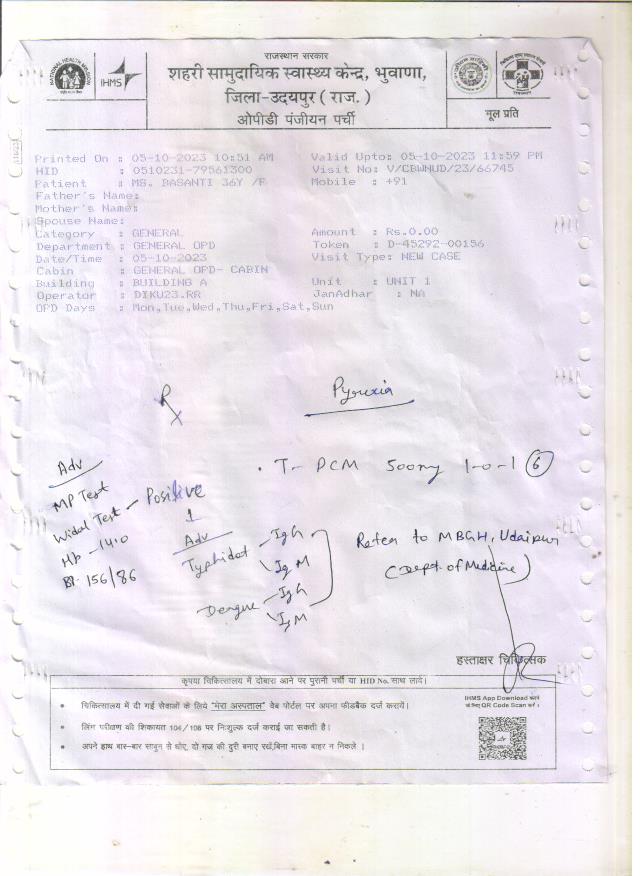 राजस्थान सरकार
शहरी सामुदायिक स्वास्थ्य केन्द्र, भुवाणा,
जिला-उदयपुर ( राज. )
ओपीडी पंजीयन पर्ची
NATIONAL HEALTH MISSION
IHMS
मूल प्रति
Printed On : 05-10-2023 10:51 AM Valid Upto: 05-10-2023 11:59 PM
HID : 0510231-79561300 Visit No: V/CBWNUD/23/66745
Patient : MS. BASANTI 36Y /F Mobile : +91
Father's Name:
Mother's Name:
Spouse Name:
Category : GENERAL Amount : Rs.0.00
Department : GENERAL OPD Token : D-45292-00156
Date/Time : 05-10-2023 Visit Type: NEW CASE
Cabin : GENERAL OPD- CABIN
Building : BUILDING A Unit : UNIT 1
Operator : DIKU23.RR JanAdhar : NA
OPD Days : Mon,Tue,Wed,Thu,Fri,Sat,Sun
Rx Pyrexia
Adv
MP Test
Widal Test - Positive
Hb - 14.0
BP 156/86
T- PCM 500mg 1-0-1 (6)
Adv
Typhidot - IgG
IgM
Dengue - IgG
IgM
Refer to MBGH, Udaipur
(Dept. of Medicine)
हस्ताक्षर चिकित्सक
कृपया चिकित्सालय में दोबारा आने पर पुरानी पर्ची या HID No. साथ लावे।
• चिकित्सालय में दी गई सेवाओं के लिये "मेरा अस्पताल" वेब पोर्टल पर अपना फीडबैक दर्ज करायें।
• लिंग परीक्षण की शिकायत 104/108 पर निःशुल्क दर्ज कराई जा सकती है।
• अपने हाथ बार-बार साबुन से धोए, दो गज की दुरी बनाए रखें,बिना मास्क बाहर न निकले ।
IHMS App Download करने
के लिए QR Code Scan करें ।